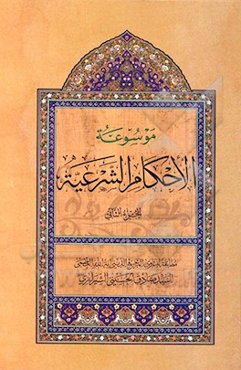 موسوعة
الأحكام الشرعية
الجزء الثاني
السيد صادق الحسيني الشيرازي